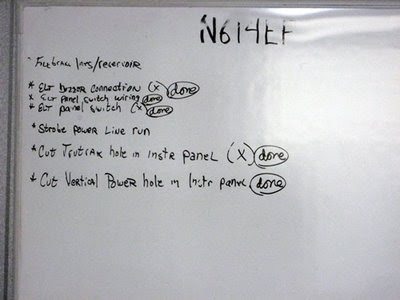 N614EF
* lines/reservoir
* ELT Buzzer Connection (X) done
* ELT Panel Switch wiring done
* ELT panel switch (X) done
* Strobe power Line run
* Cut Trutrak hole in Instr panel (X) done
* Cut Vertical Power hole in Instr panel done